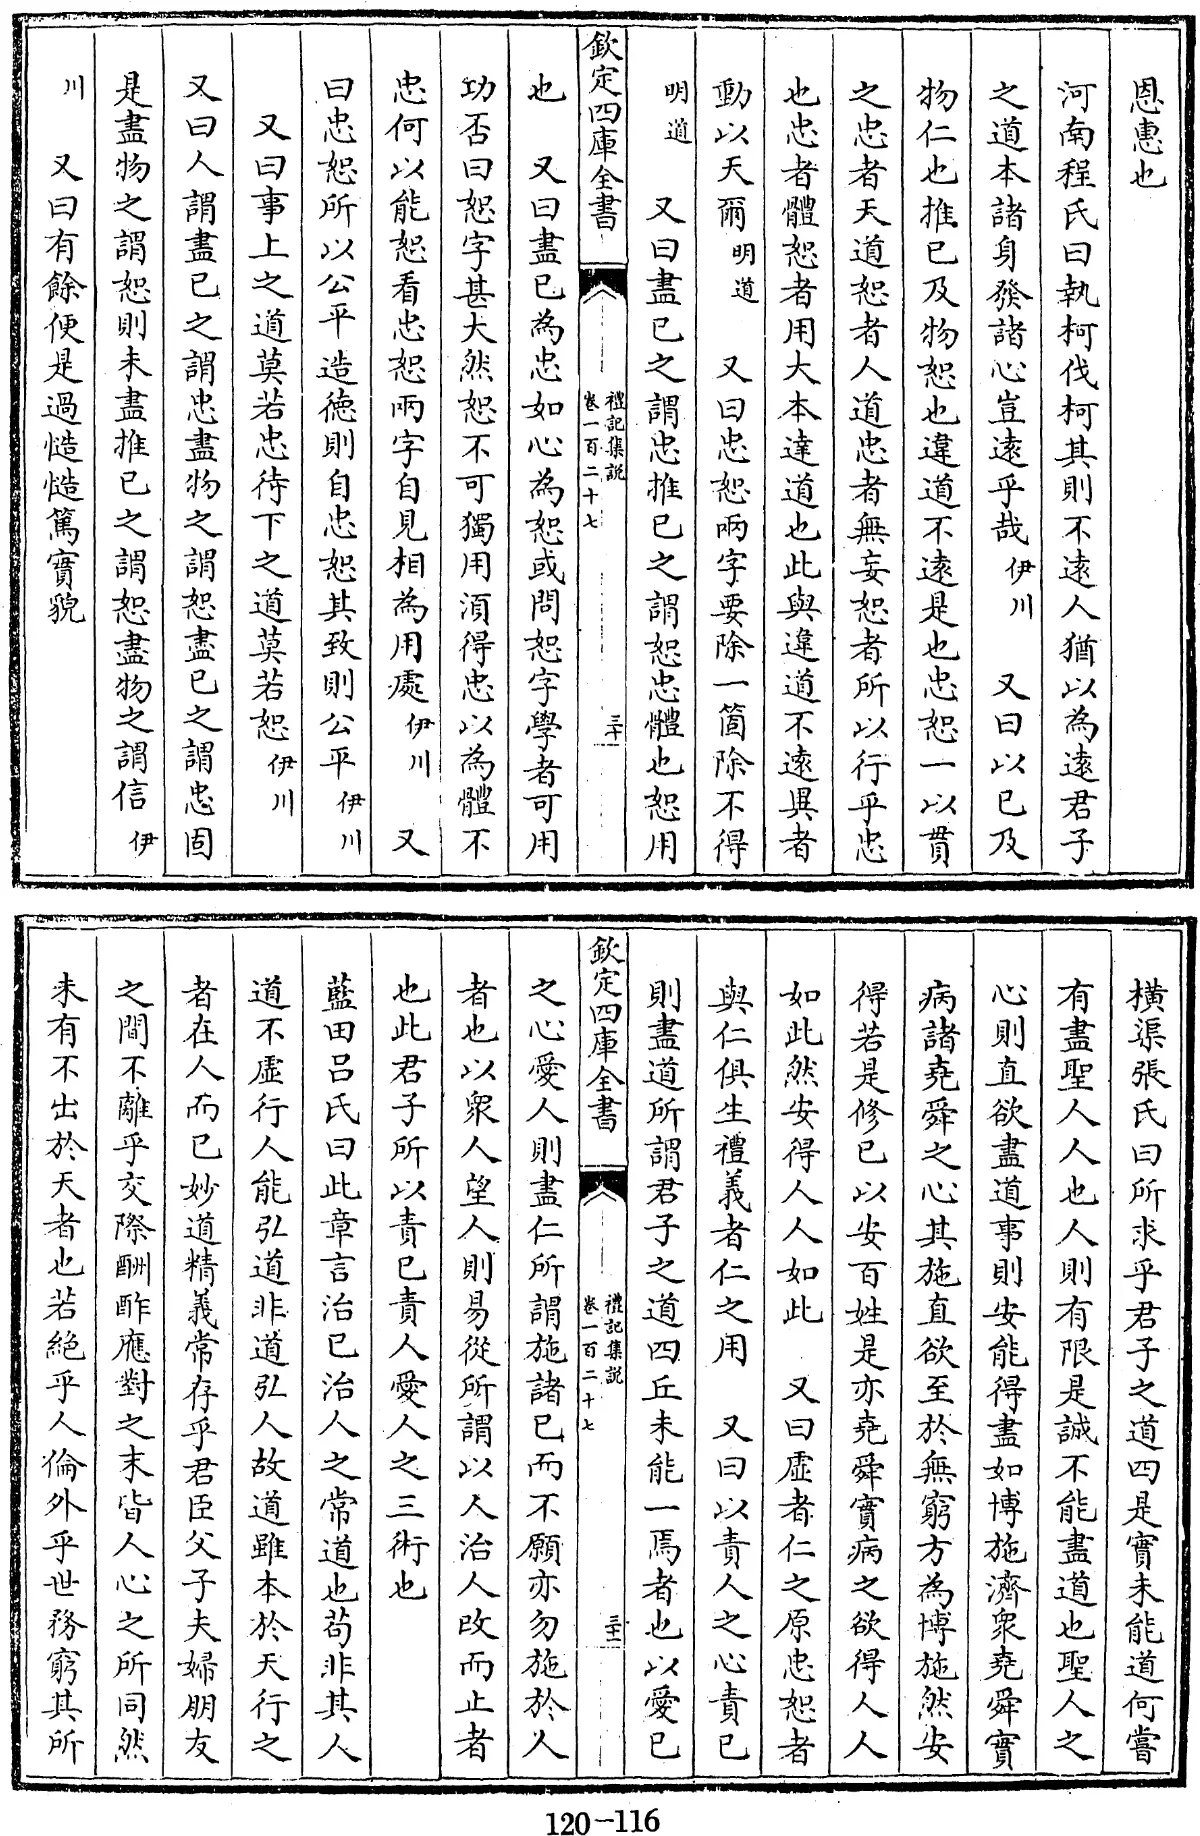 恩惠也
河南程氏曰執柯伐柯其則不遠人猶以為遠君子
之道本諸身發諸心豈遠乎哉伊川　又曰以已及
物仁也推已及物恕也違道不遠是也忠恕一以貫
之忠者天道恕者人道忠者無妄恕者所以行乎忠
也忠者體恕者用大本達道也此與違道不遠異者
動以天爾明道　又曰忠恕兩字要除一箇除不得
明道　又曰盡已之謂忠推已之謂恕忠體也恕用
欽定四庫全書
禮記集説
卷一百二十七
三十
也　又曰盡已為忠如心為恕或問恕字學者可用
功否曰恕字甚大然恕不可獨用須得忠以為體不
忠何以能恕看忠恕兩字自見相為用處伊川　又
曰忠恕所以公平造德則自忠恕其致則公平伊川
又曰事上之道莫若忠待下之道莫若恕伊川
又曰人謂盡已之謂忠盡物之謂恕盡已之謂忠固
是盡物之謂恕則未盡推已之謂恕盡物之謂信伊
川　又曰有餘便是過慥慥篤實貌
橫渠張氏曰所求乎君子之道四是實未能道何嘗
有盡聖人人也人則有限是誠不能盡道也聖人之
心則直欲盡道事則安能得盡如博施濟衆堯舜實
病諸堯舜之心其施直欲至於無窮方為博施然安
得若是修已以安百姓是亦堯舜實病之欲得人人
如此然安得人人如此　又曰虛者仁之原忠恕者
與仁俱生禮義者仁之用　又曰以責人之心責已
則盡道所謂君子之道四丘未能一焉者也以愛已
欽定四庫全書
禮記集説
卷一百二十七
三十一
之心愛人則盡仁所謂施諸已而不願亦勿施於人
者也以衆人望人則易從所謂以人治人改而止者
也此君子所以責已責人愛人之三術也
藍田呂氏曰此章言治已治人之常道也苟非其人
道不虛行人能弘道非道弘人故道雖本於天行之
者在人而已妙道精義常存乎君臣父子夫婦朋友
之間不離乎交際酬酢應對之末皆人心之所同然
未有不出於天者也若絶乎人倫外乎世務窮其所
120-116